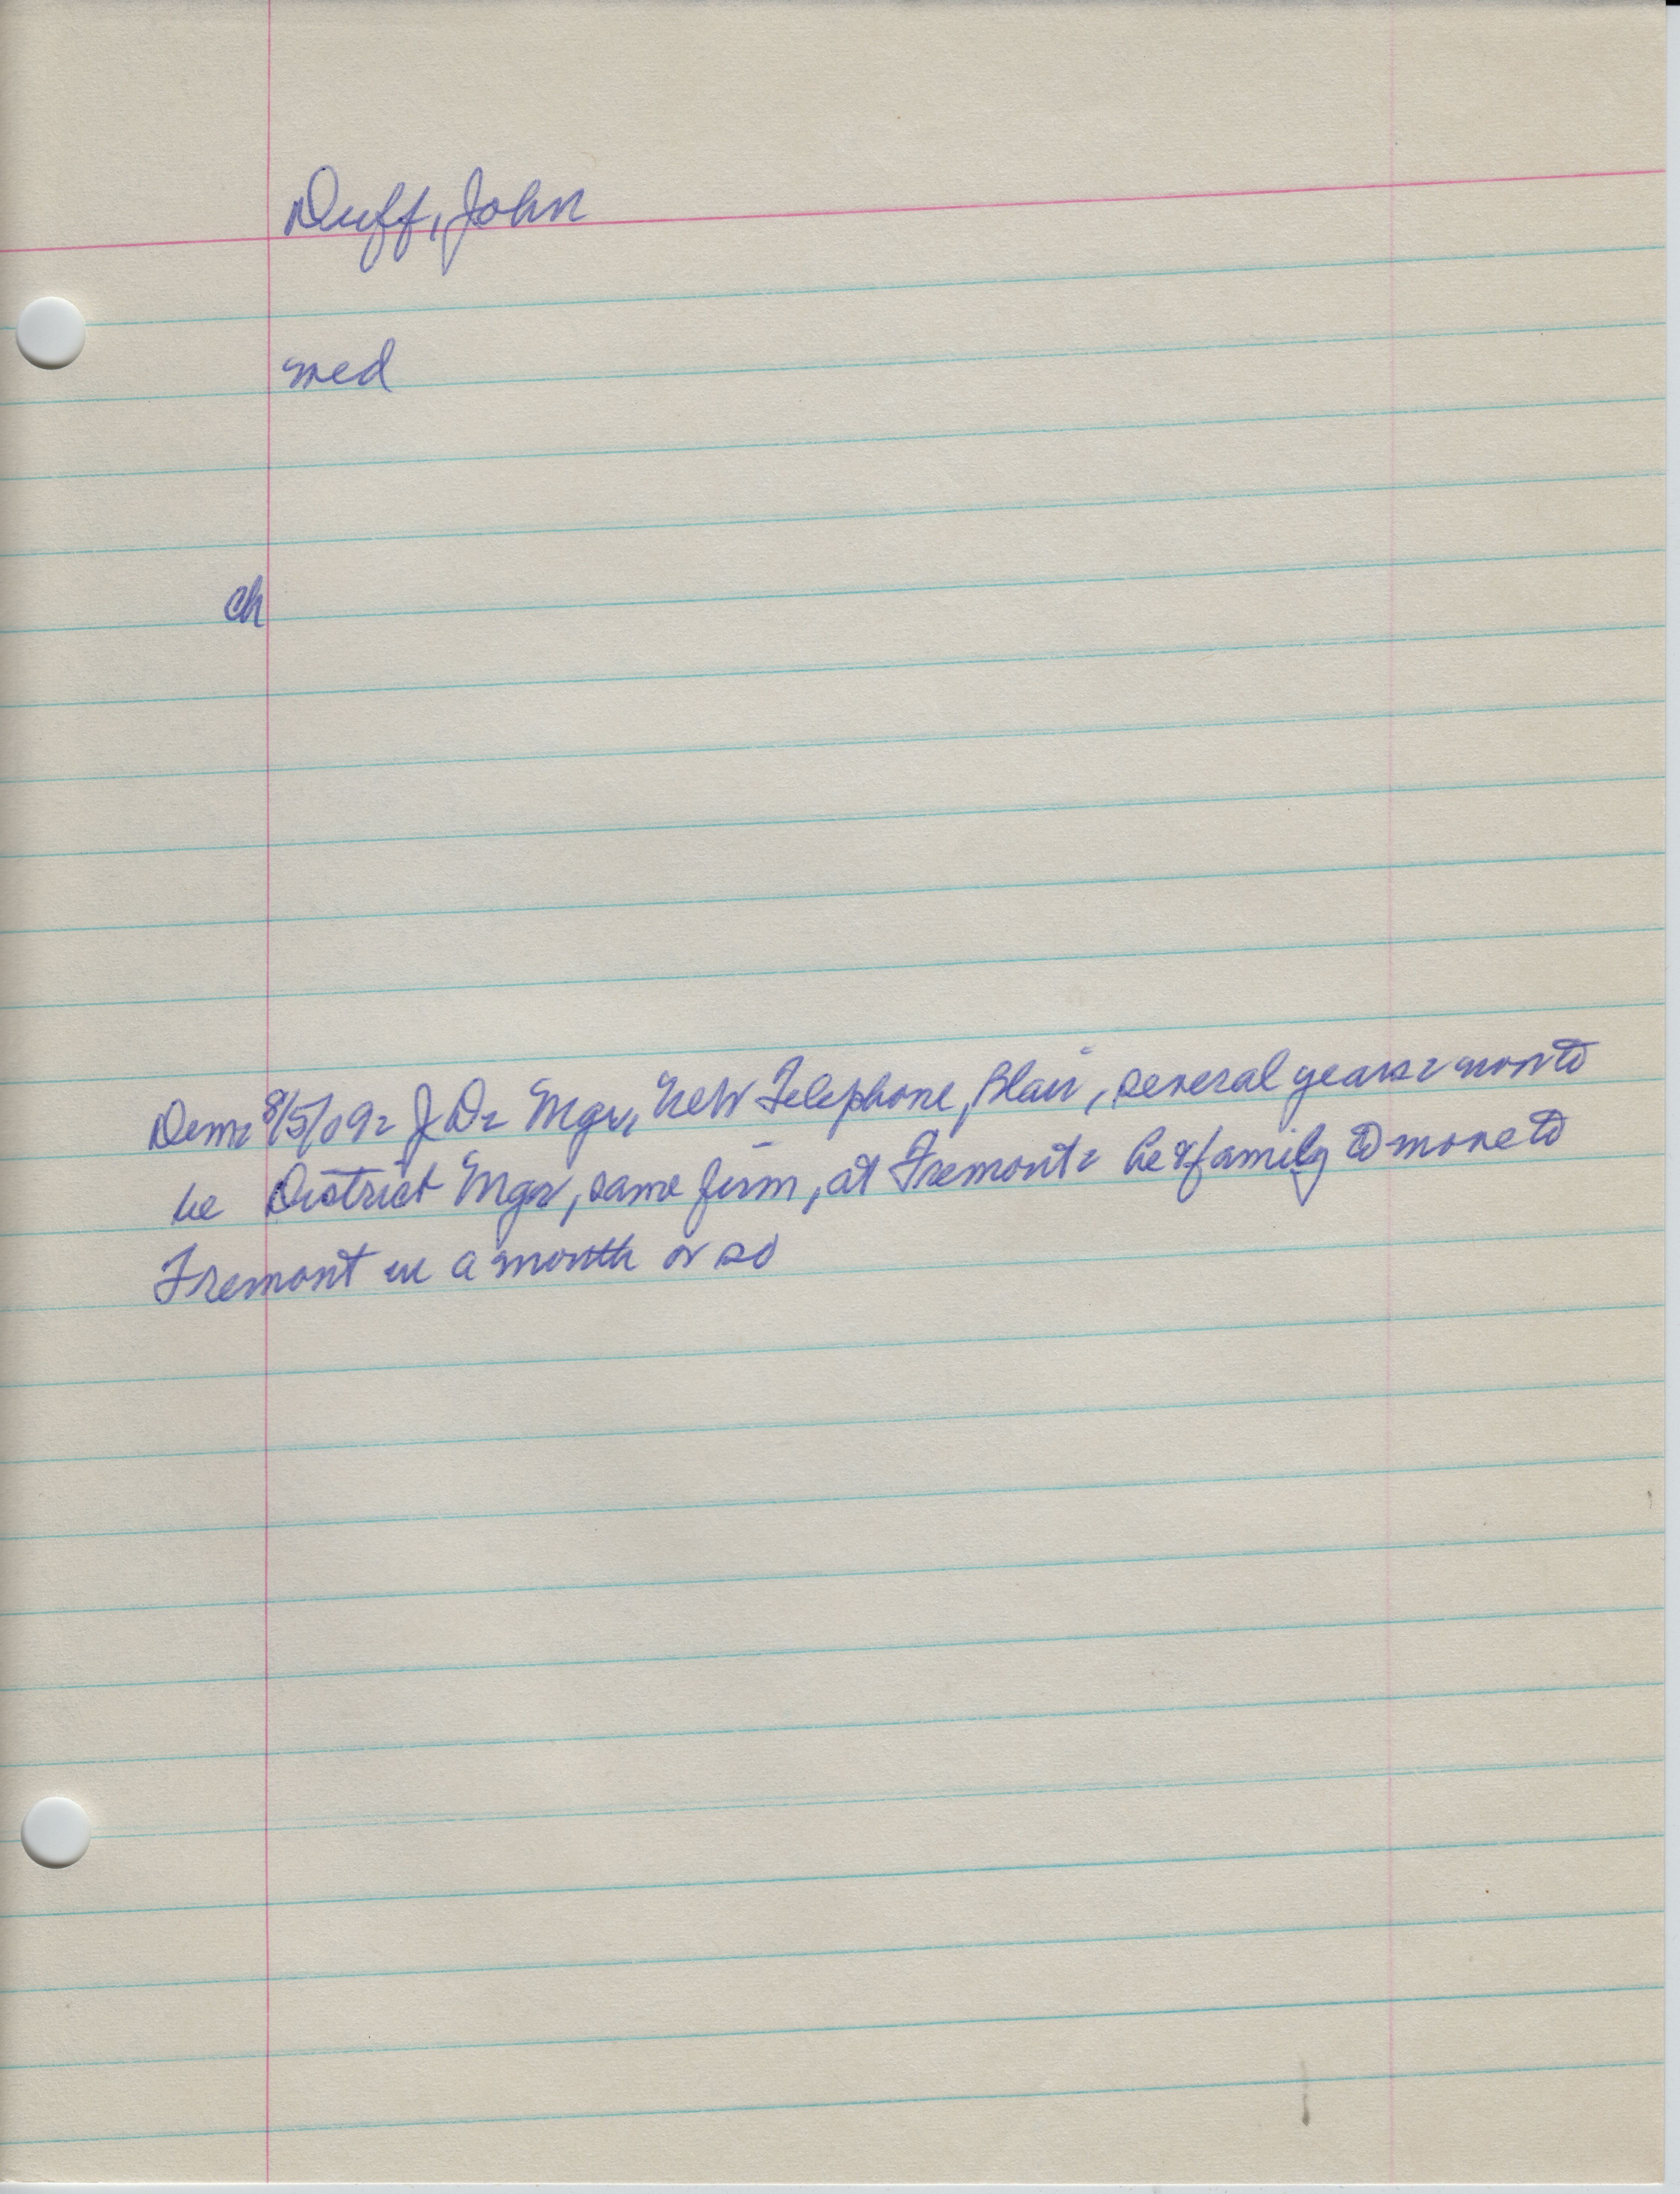 Duff, John
med
ch
Dem= 8/5/09= J D= Mgr, Neb Telephone, Blair, several years= now to
be District Mgr, same firm, at Fremont= he & family to move to
Fremont in a month or so